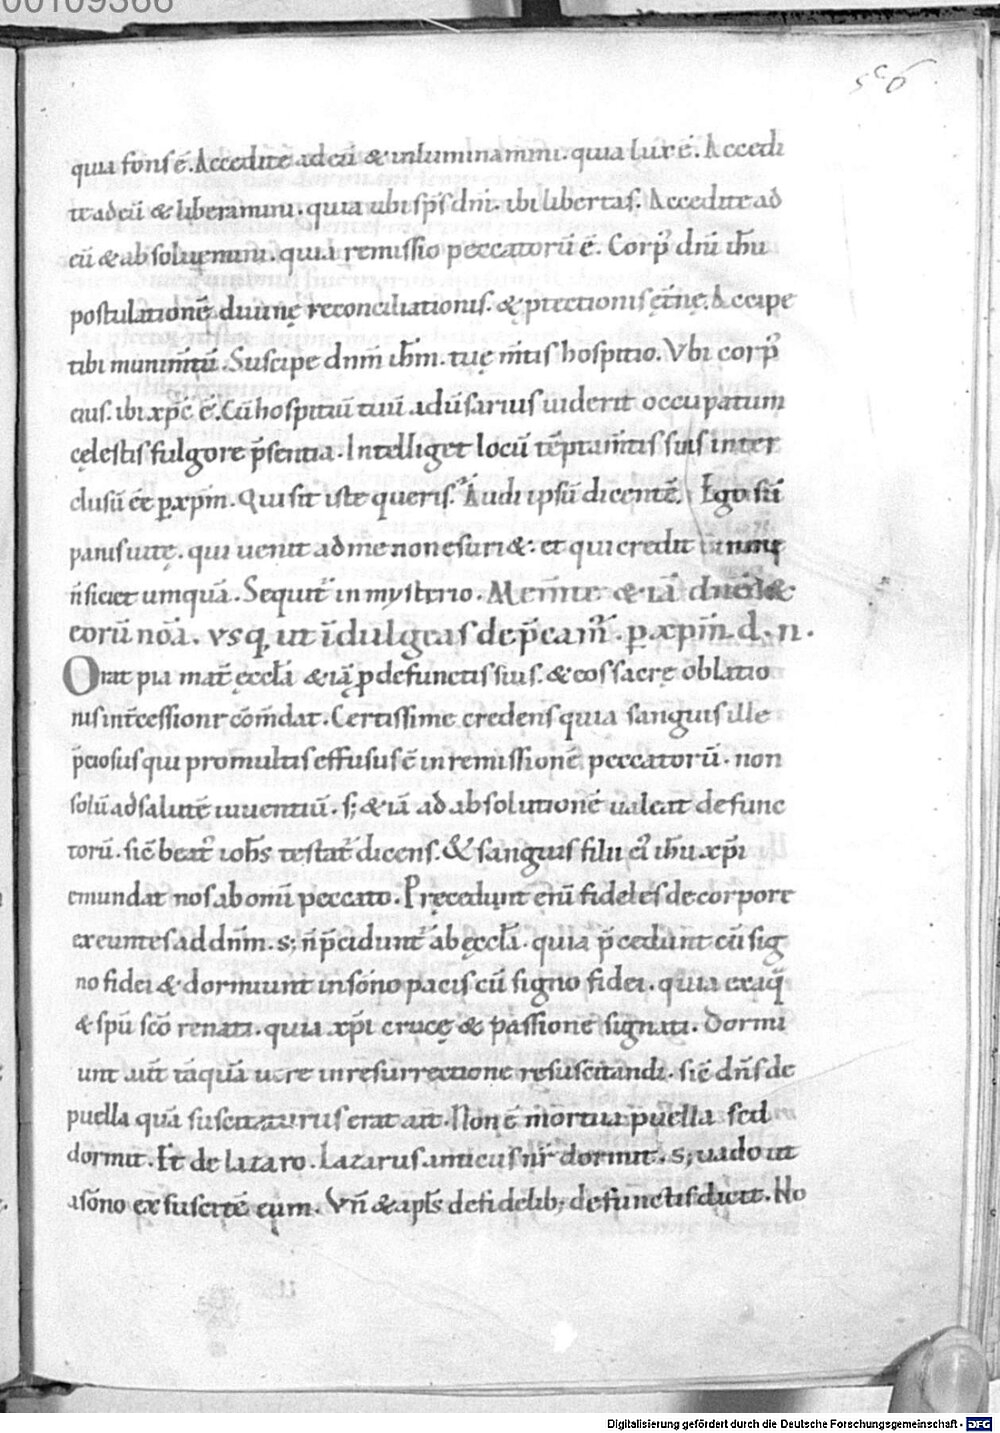 00109366
56
quia fons ē. Accedite ad eū & inluminamini. quia lux ē. Accedi
te ad eū & liberamini. quia ubi sp̄s dn̄i. ibi libertas. Accedite ad
eū & absoluemini. quia remissio peccatorū ē. Corp᾽ dn̄i ih̄u
postulationē diuinę reconciliationis. & p̄tectionis ęt̄nę. Accipe
tibi munim̄tū. Suscipe dn̄m ih̄m. tuę m̄tis hospitio. Vbi corp᾽
eius. ibi xp̄c ē. Cū hospitiū tuū adūsarius uiderit occupatum
cęlestis fulgore p̄sentia. Intelliget locū tēptam̄tis suis inter
clusū eē ꝑ xp̄m. Qui sit iste queris? Audi ipsū dicentē. Ego sū
panis uitę. qui uenit ad me non esuri&. et qui credit in me
n̄ siciet umquā. Sequit᾽ in mysterio. Mem̄to & iā dn̄e
eorū noīa. vsq, ut īdulgeas dep̄cam᾽. ꝑ xp̄m d. n.
Orat pia mat̄ ęccl̄a &iā ꝓ defunctis suis. & eos sacrę oblatio
nis int̄cessione cōm̄dat. Certissime credens quia sanguis ille
p̄ciosus qui pro multis effusus ē in remissionē peccatorū. non
solū ad salutē uiuentiū. s; &iā ad absolutionē ualeat defunc
torū. sic̄ beat᾽ ioh̄s testat᾽ dicens. & sanguis filii ei᾽ ih̄u xp̄i
emundat nos ab omī peccato. Pręcedunt enī fideles de corpore
exeuntes ad dn̄m. s; n̄ p̄cidunt᾽ ab ęccl̄a. quia p̄cedunt cū sig
no fidei & dormiunt in sōno pacis cū signo fidei. quia ex aq̄
& sp̄u sc̄o renati. quia xp̄i crucę & passione signati. Dormi
unt aūt tāquā uere in resurrectione resuscitandi. sic̄ dn̄s de
puella quā suscitaturus erat ait. Non ē mortua puella sed
dormit. Et de lazaro. Lazarus amicus nr̄ dormit. s; uado ut
a sōno exsuscitē eum. Vn̄ & apl̄s de fidelib; defunctis dicit. No
Digitalisierung gefördert durch die Deutsche Forschungsgemeinschaft - DFG